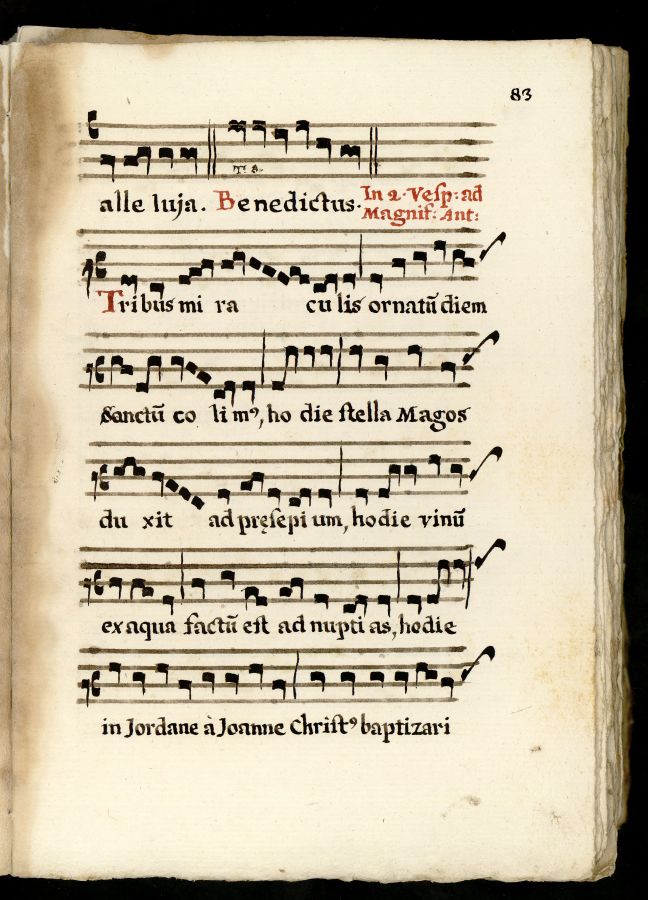 83
T. 8.
alle luja. Benedictus. In 2. Vesp: ad
Magnif: Ant:
Tribus mi ra cu lis ornatũ diem
Sanctũ co li mꝰ, ho die stella Magos
du xit ad pręsepi um, hodie vinũ
ex aqua factũ est ad nupti as, hodie
in Jordane à Joanne Christꝰ baptizari